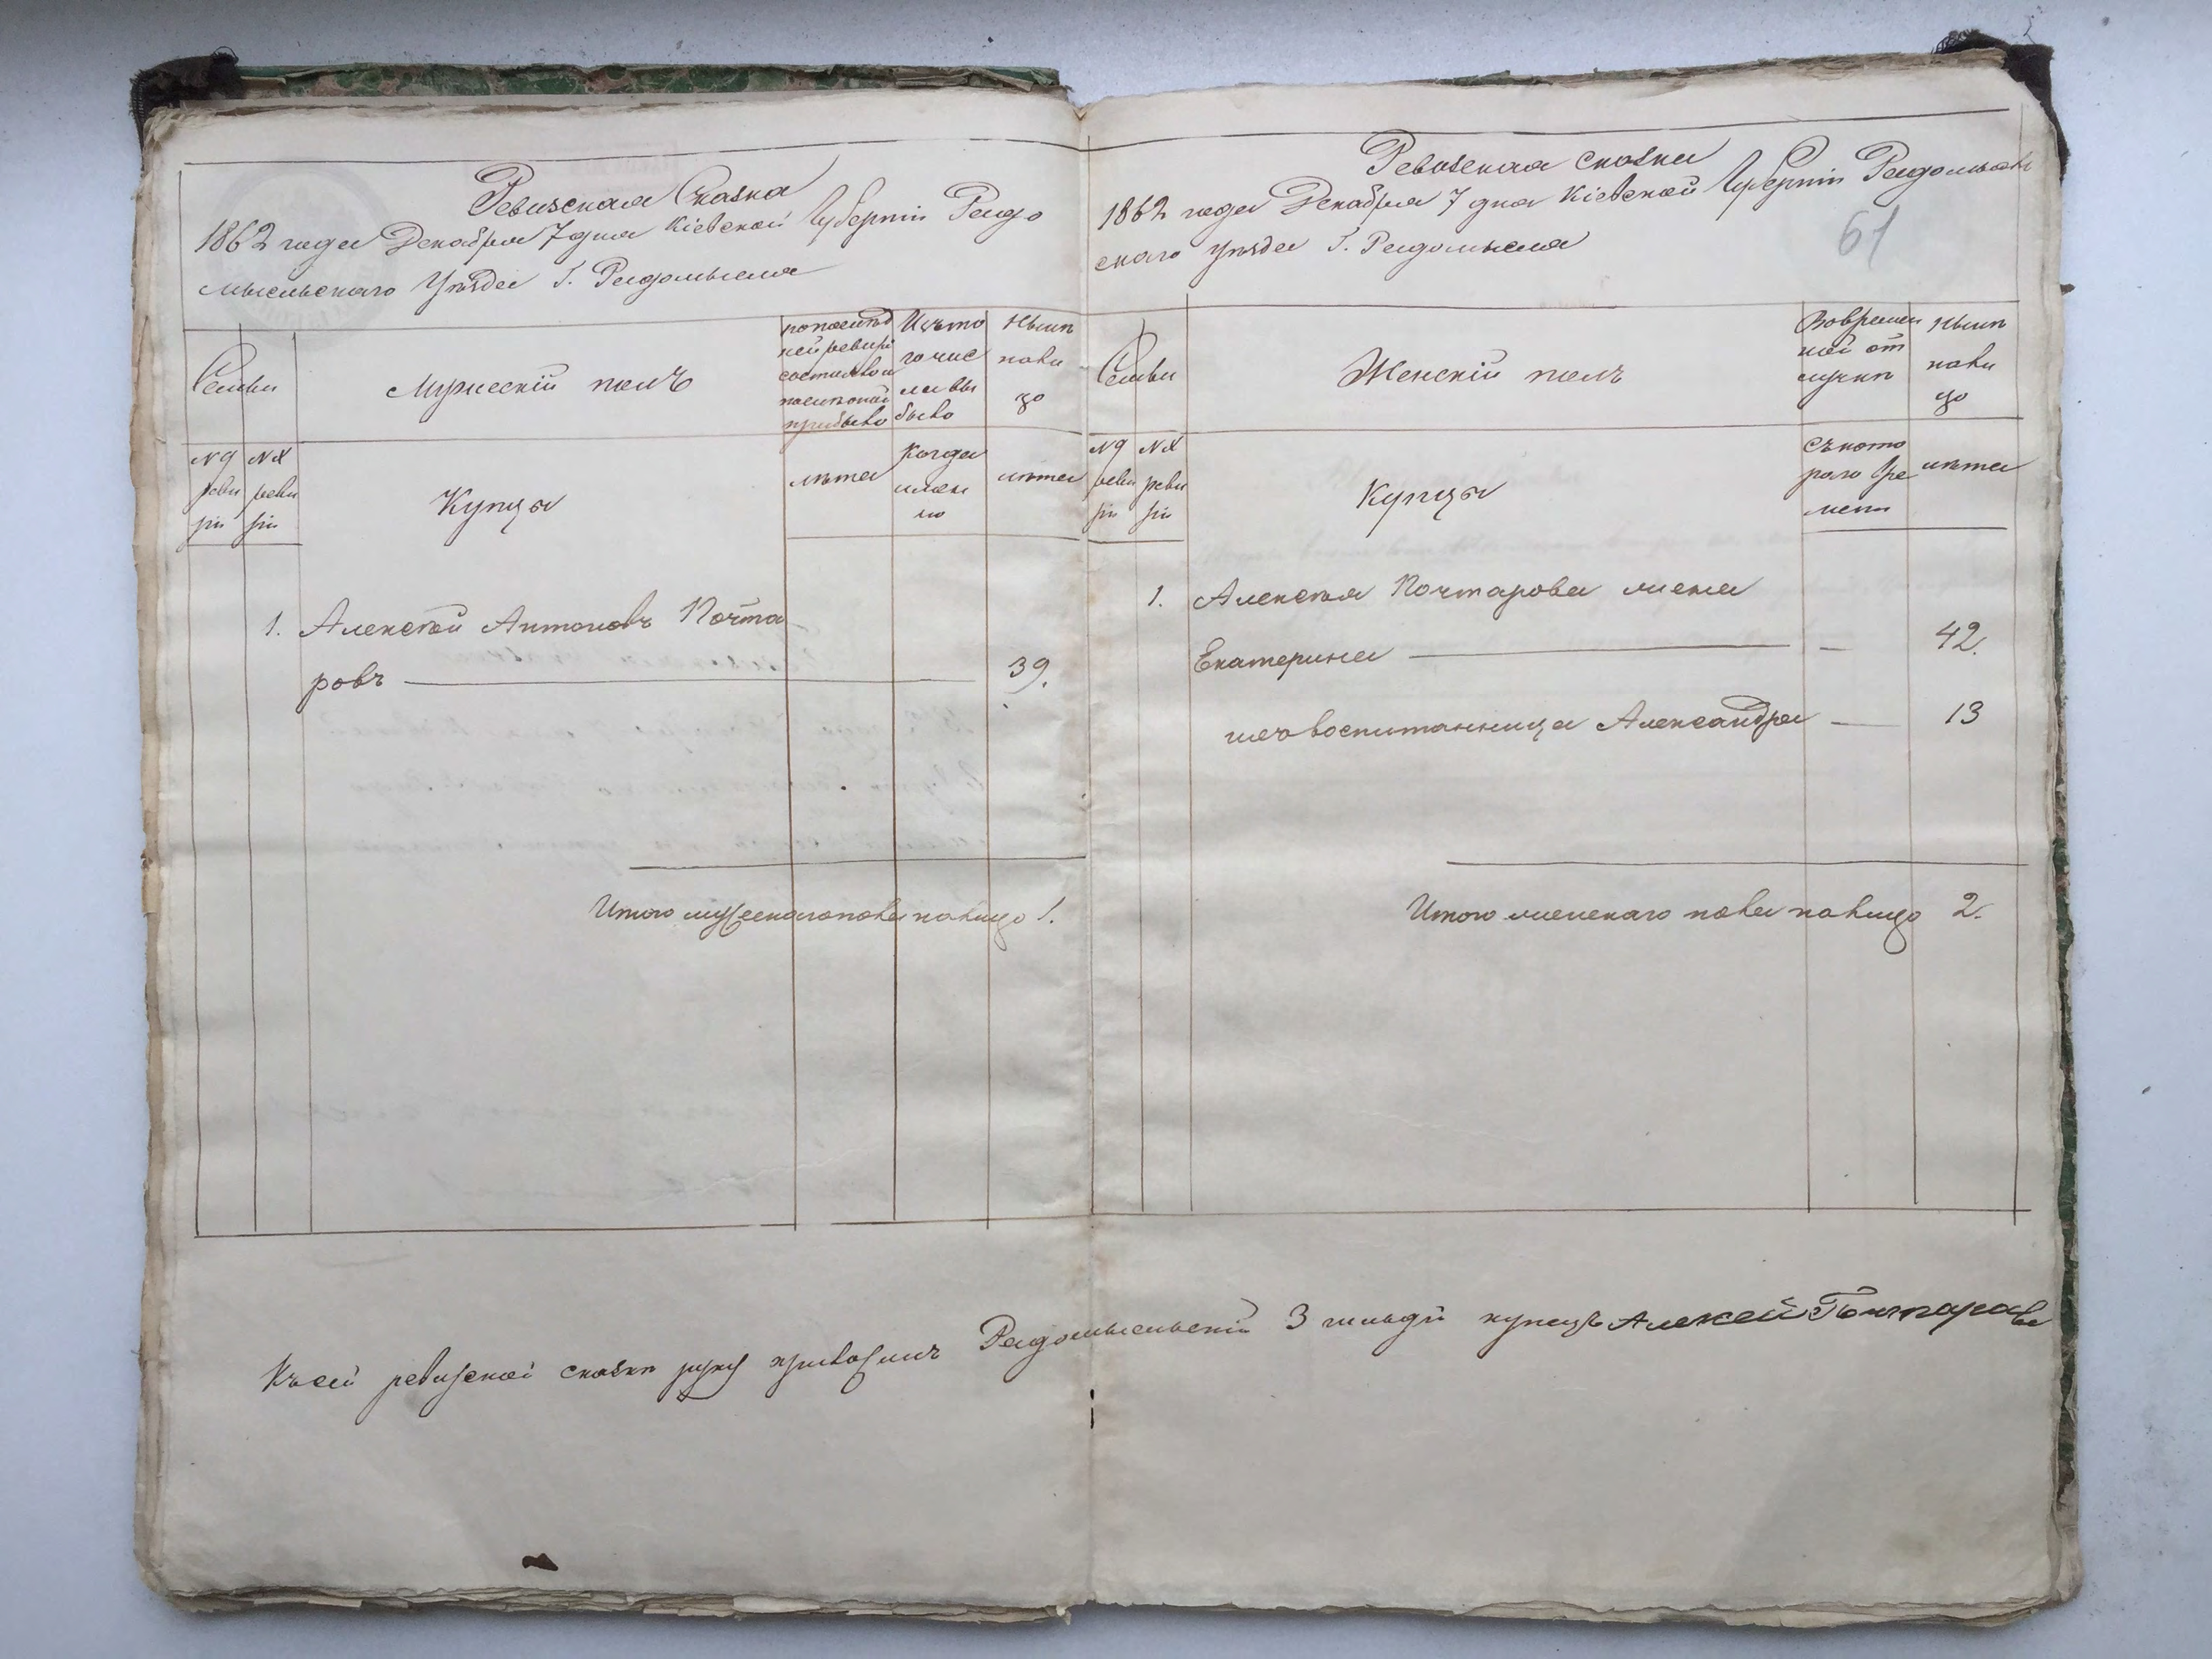 Ревизская Сказка
1862 года Декабря 7 дня Кіевской Губерніи Радо
мысльскаго Уѣзда Г. Радомысля
Семьи
Мужескій полъ
попослѣд
ней ревизіи
состояло и
послѣ оной
прибыло
Изъ то
го чис
ла вы
было
Нынѣ
на ли
цо
№
реви
зіи
№
реви
зіи
Купцы
лѣта
Когда
имен
но
лѣта
1. Алексѣй Антоновъ Почта
ровъ 39.
Итого мужескаго пола на лицо 1.
Ревизская сказка
1862 года Декабря 7 дня Кіевской Губерніи Радомысль
скаго Уѣзда Г. Радомысля
61
Семьи
Женскій полъ
Во времен
ной от
лучкѣ
Нынѣ
на ли
цо
№
реви
зіи
№
реви
зіи
Купцы
Съ кото
раго вре
мени
лѣта
1. Алексѣя Почтарова жена
Екатерина 42.
его воспитанница Александра 13
Итого женскаго пола на лицо 2.
Къ сей ревизской сказкѣ руку приложилъ Радомысльскій 3 гильдіи купецъ Алексей Почтаровъ